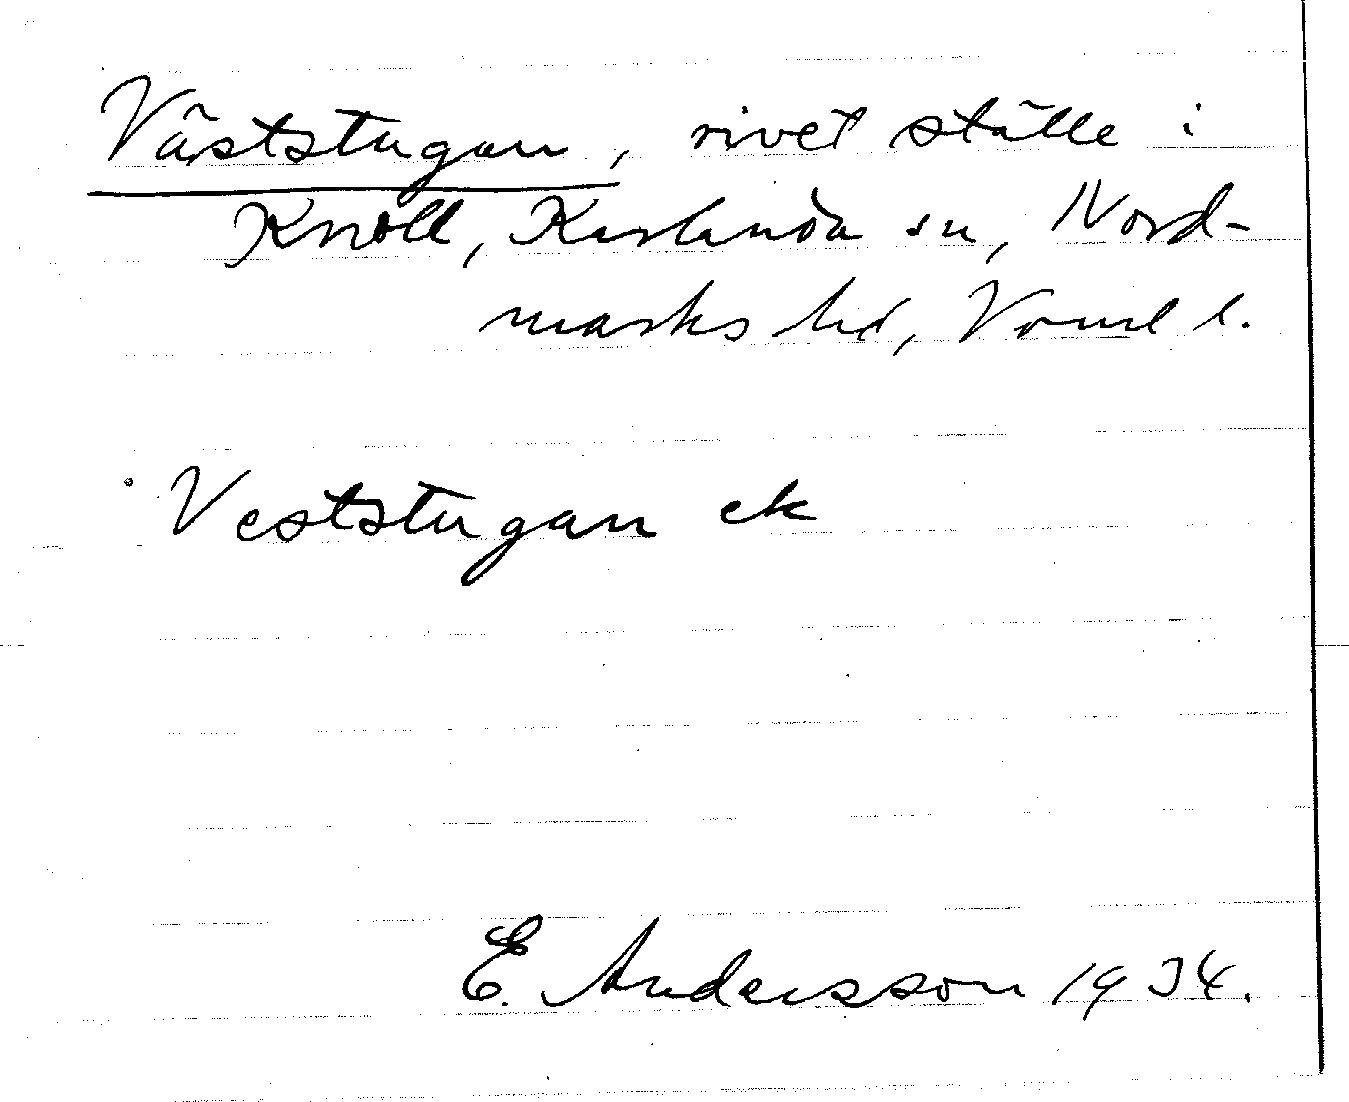 Väststugan, rivet ställe i
Knoll, Karlanda sn, Nord-
marks hd, Värml l.
Veststugan ek
E. Andersson 1934.